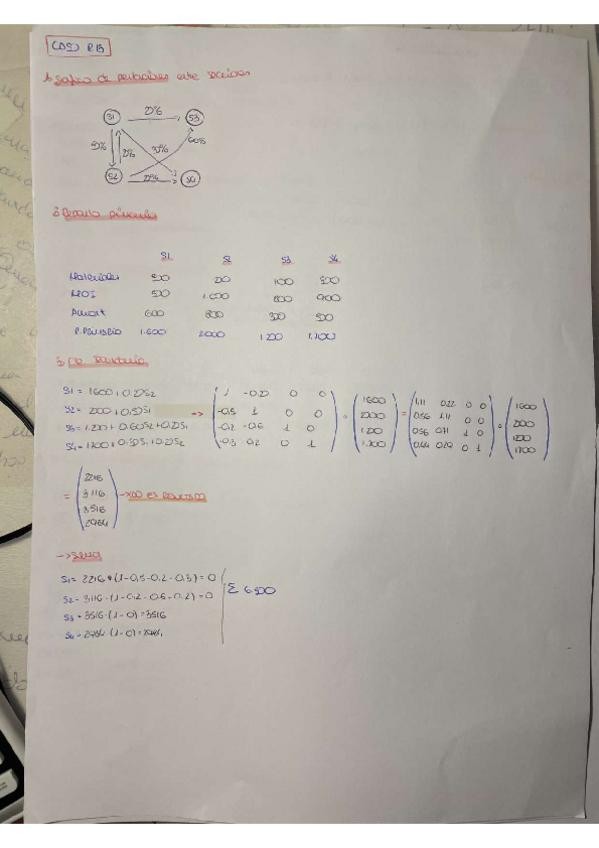 CASO RB
1. Gráfico de
S1 20% S3
50% 20% 30% 60%
S2 20% S4
S1 S2 S3 S4
Materiales 500 200 100 300
MOI 500 1.000 800 900
Amort 600 800 300 500
P. Primario 1.600 2000 1.200 1.700
S1 = 1600 + 0.20S2
S2 = 2000 + 0.50S1
S3 = 1.200 + 0.60S2 + 0.20S1
S4 = 1.700 + 0.30S1 + 0.20S2
→
1 -0.20 0 0
-0.5 1 0 0
-0.2 -0.6 1 0
-0.3 -0.2 0 1
1600
2000
1.200
1.700
=
1.11 0.22 0 0
0.56 1.11 0 0
0.56 0.71 1 0
0.44 0.29 0 1
1600
2000
1200
1700
=
2216
3116
3516
2984
→ no es
→ Seria
S1 = 2216 · (1-0.5-0.2-0.3) = 0
S2 = 3116 · (1-0.2-0.6-0.2) = 0
Σ 6500
S3 = 3516 · (1-0) = 3516
S4 = 2984 · (1-0) = 2984